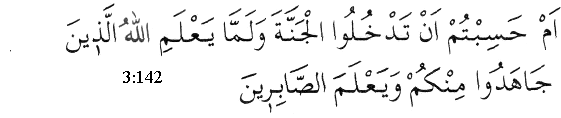 اَمْ حَسِبْتُمْ اَنْ تَدْخُلُوا الْجَنَّةَ وَلَمَّا يَعْلَمِ اللّٰهُ الَّذ۪ينَ
جَاهَدُوا مِنْكُمْ وَيَعْلَمَ الصَّابِر۪ينَ
3:142